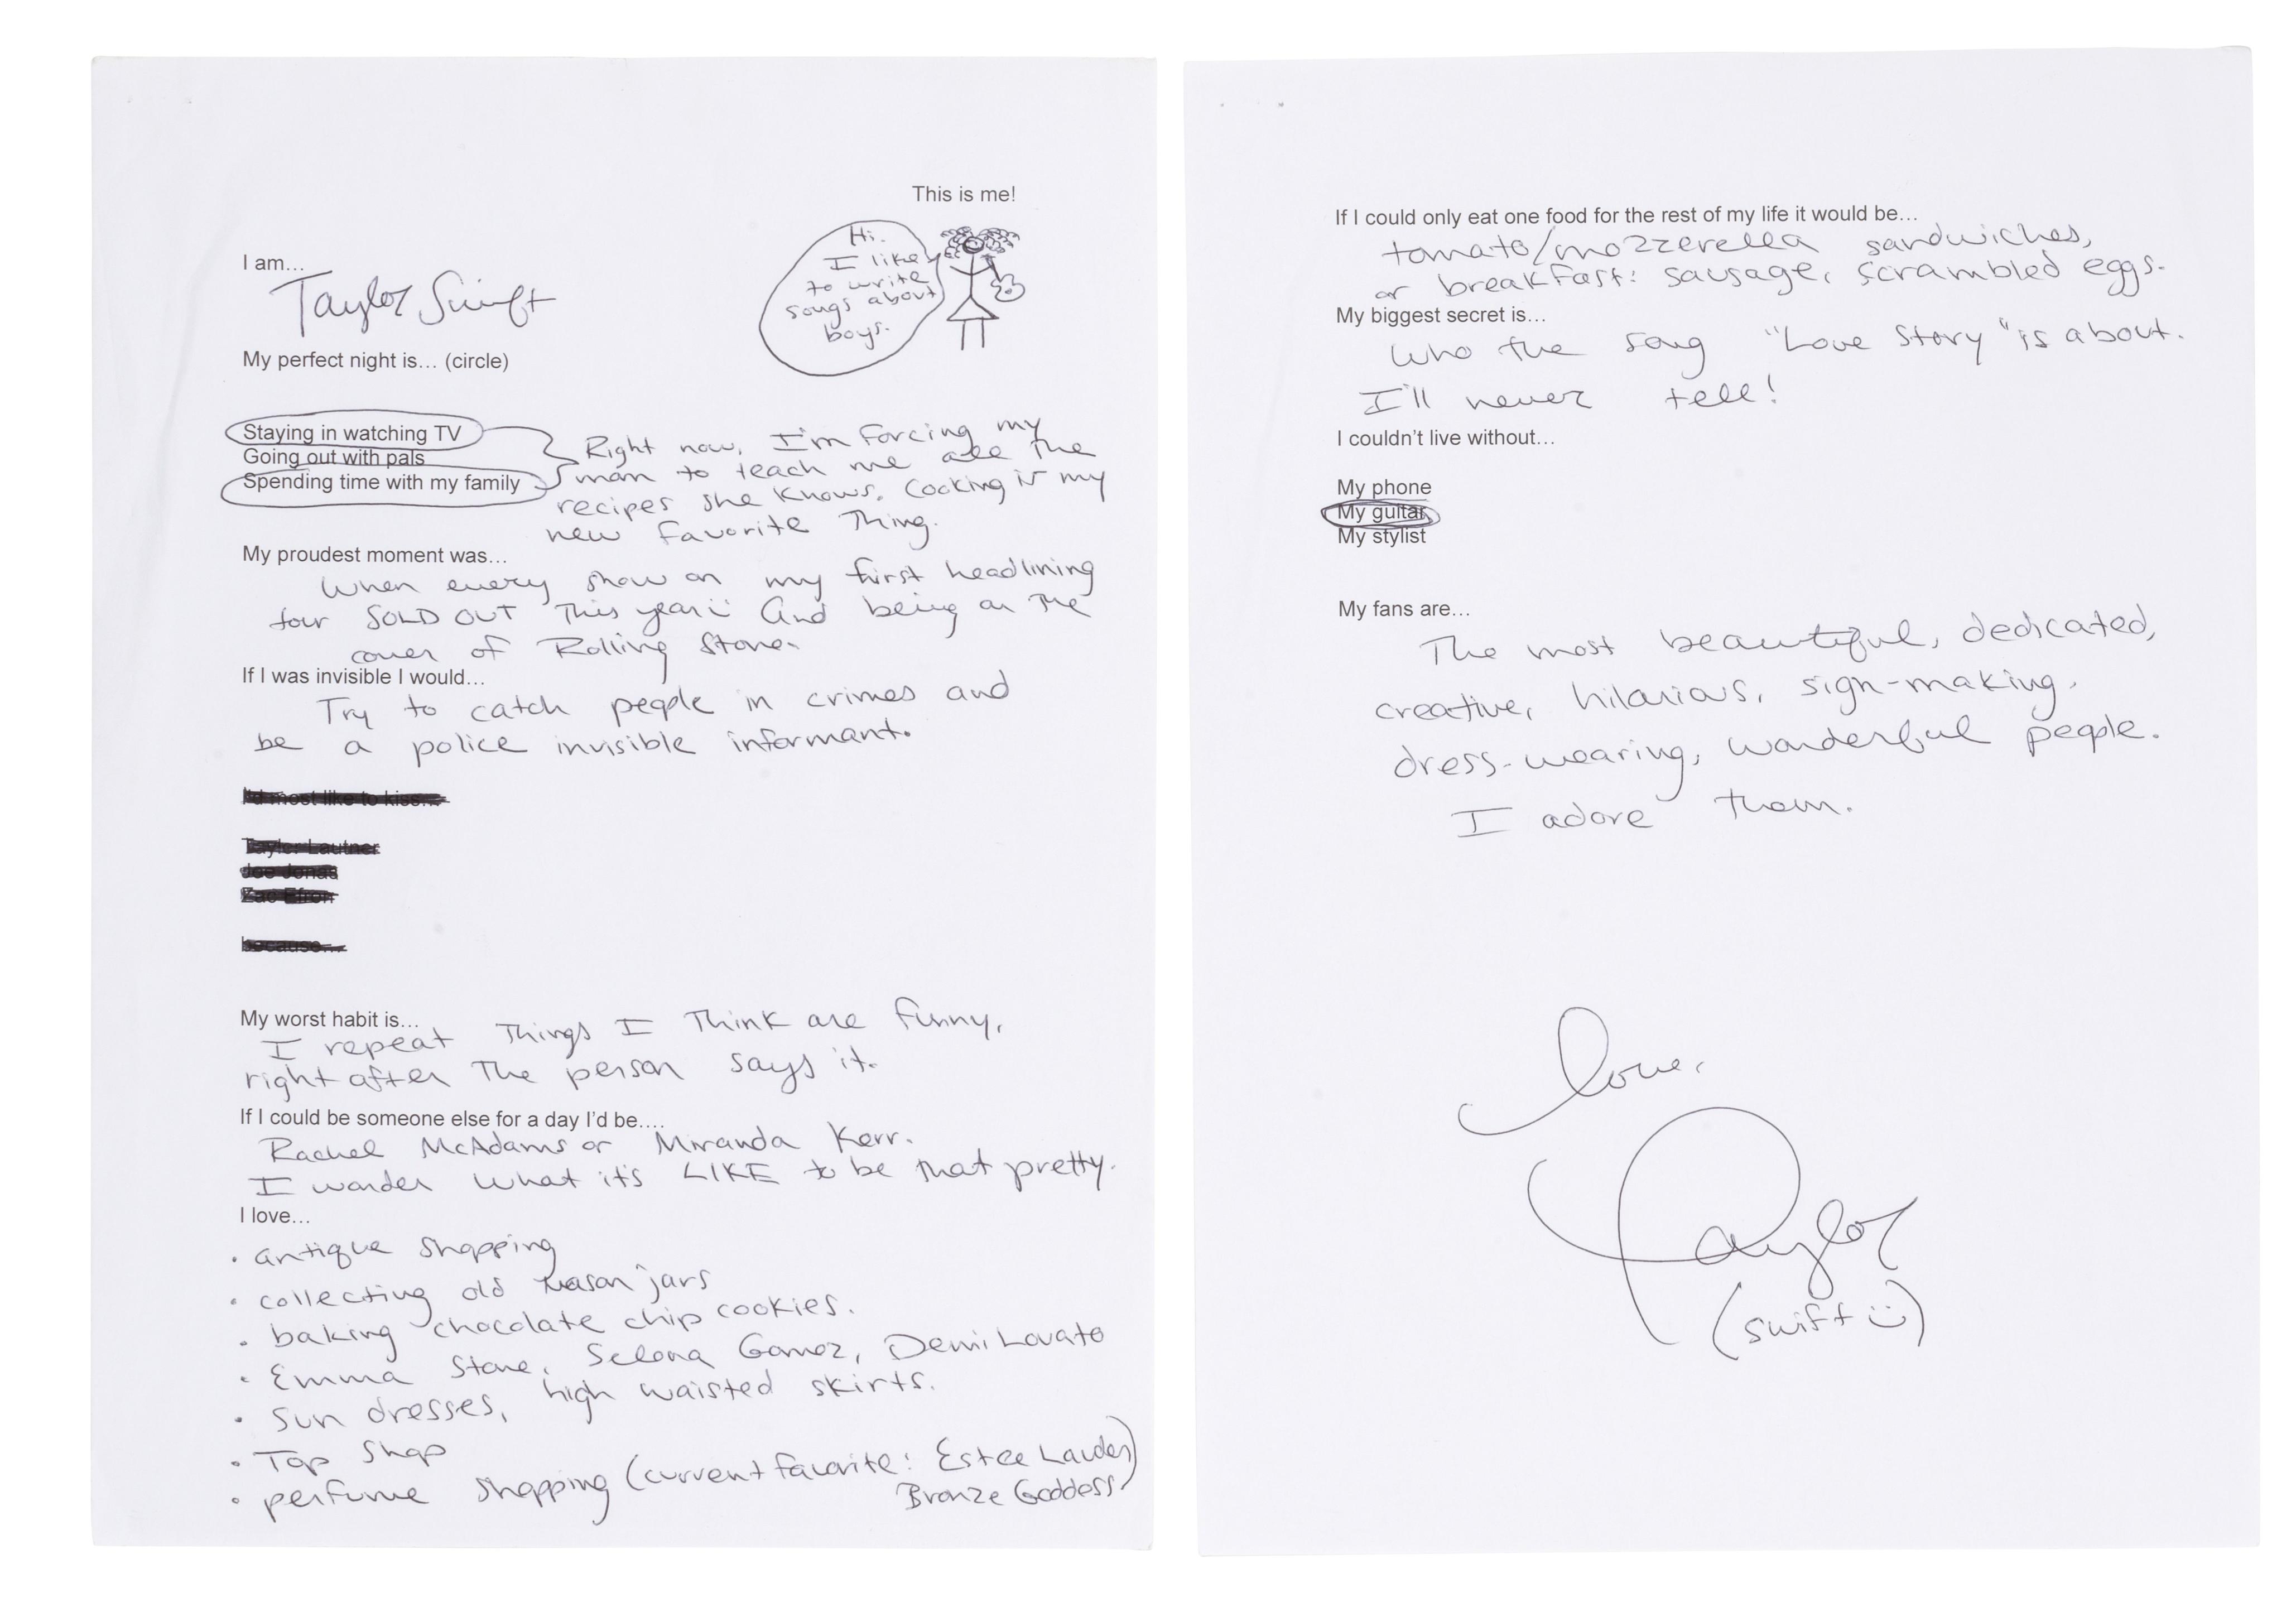 This is me!
Hi.
I like
to write
songs about
boys.
I am...
Taylor Swift
My perfect night is... (circle)
Staying in watching TV
Going out with pals
Spending time with my family
Right now, I'm forcing my
mom to teach me all the
recipes she knows. Cooking is my
new favorite thing.
My proudest moment was...
When every show on my first headlining
tour SOLD OUT this year :) and being on the
cover of Rolling Stone.
If I was invisible I would...
Try to catch people in crimes and
be a police invisible informant.
I'd most like to kiss...
Taylor Lautner
Joe Jonas
Zac Efron
because...
My worst habit is...
I repeat things I think are funny,
right after the person says it.
If I could be someone else for a day I'd be....
Rachel McAdams or Miranda Kerr.
I wonder what it's LIKE to be that pretty.
I love...
• antique shopping
• collecting old mason jars
• baking chocolate chip cookies.
• Emma Stone, Selena Gomez, Demi Lovato
• Sun dresses, high waisted skirts.
• Top Shop
• perfume shopping (current favorite: Estee Lauder
Bronze Goddess)
If I could only eat one food for the rest of my life it would be...
tomato/mozzerella sandwiches,
or breakfast: sausage, scrambled eggs.
My biggest secret is...
Who the song "Love Story" is about.
I'll never tell!
I couldn't live without...
My phone
My guitar
My stylist
My fans are...
The most beautiful, dedicated,
creative, hilarious, sign-making,
dress-wearing, wonderful people.
I adore them.
Love,
Taylor
(swift :))